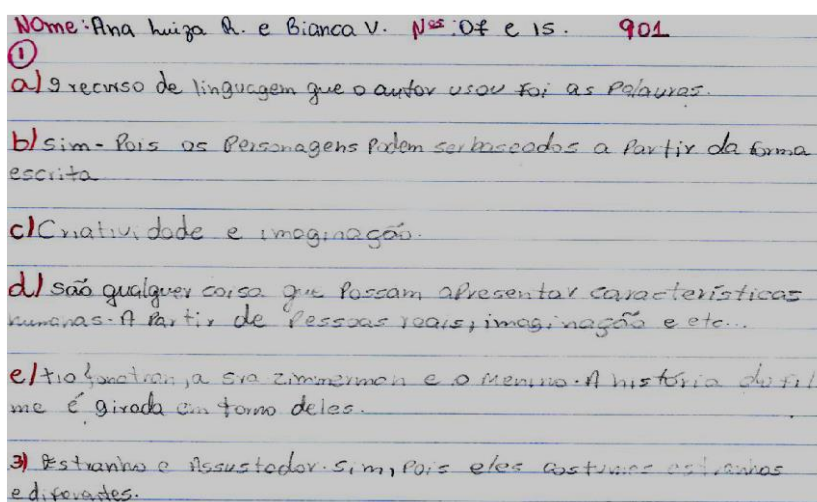 Nome: Ana Luiza R. e Bianca V. Nºs: 07 e 15. 901
1
a) O recurso de linguagem que o autor usou foi as palavras.
b) sim - Pois os Personagens Podem ser baseados a Partir da forma
escrita
c) Criatividade e imaginação.
d) são qualquer coisa que Possam apresentar características
humanas. A Partir de Pessoas reais, imaginação e etc...
e) tio Jonathan, a sra zimmerman e o menino. A história do fil
me é girada em torno deles.
3) Estranho e Assustador. sim, Pois eles costumes estranhos
e diferentes.